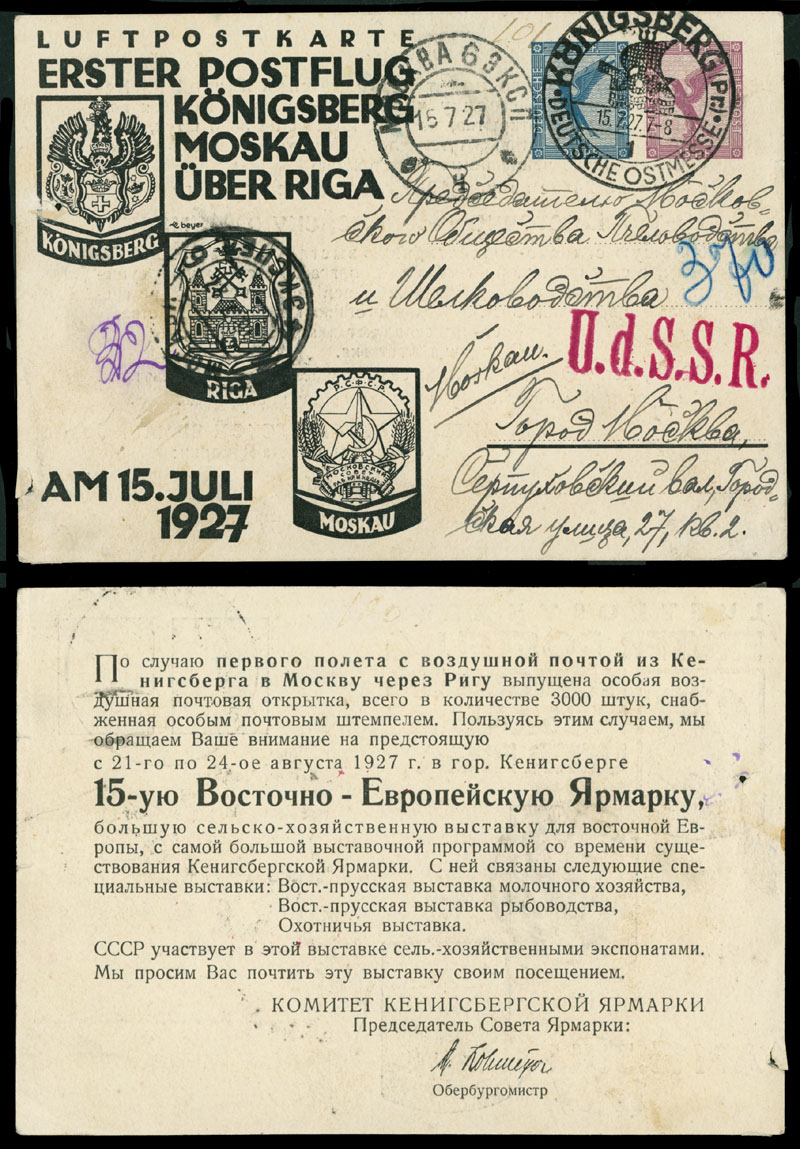 LUFTPOSTKARTE
ERSTER POSTFLUG
KÖNIGSBERG
MOSKAU
ÜBER RIGA
beyer
KÖNIGSBERG
RIGA
Р.С.Ф.С.Р.
МОСКОВСКИЙ
СОВЕТ
MOSKAU
AM 15. JULI
1927
МОСКВА 63 КСП
16 7 27
DEUTSCHE
KÖNIGSBERG (Pr.)
15.7.27.7-8
DEUTSCHE OSTMESSE
Председателю Москов-
ского Общества Пчеловодства
и Шелководства
U.d.S.S.R.
Moskau.
Город Москва,
Серпуховский вал, Город-
ская улица, 27, кв. 2.
По случаю первого полета с воздушной почтой из Ке-
нигсберга в Москву через Ригу выпущена особая воз-
душная почтовая открытка, всего в количестве 3000 штук, снаб-
женная особым почтовым штемпелем. Пользуясь этим случаем, мы
обращаем Ваше внимание на предстоящую
с 21-го по 24-ое августа 1927 г. в гор. Кенигсберге
15-ую Восточно - Европейскую Ярмарку,
большую сельско-хозяйственную выставку для восточной Ев-
ропы, с самой большой выставочной программой со времени суще-
ствования Кенигсбергской Ярмарки. С ней связаны следующие спе-
циальные выставки: Вост.-прусская выставка молочного хозяйства,
Вост.-прусская выставка рыбоводства,
Охотничья выставка.
СССР участвует в этой выставке сель.-хозяйственными экспонатами.
Мы просим Вас почтить эту выставку своим посещением.
КОМИТЕТ КЕНИГСБЕРГСКОЙ ЯРМАРКИ
Председатель Совета Ярмарки:
Обербургомистр